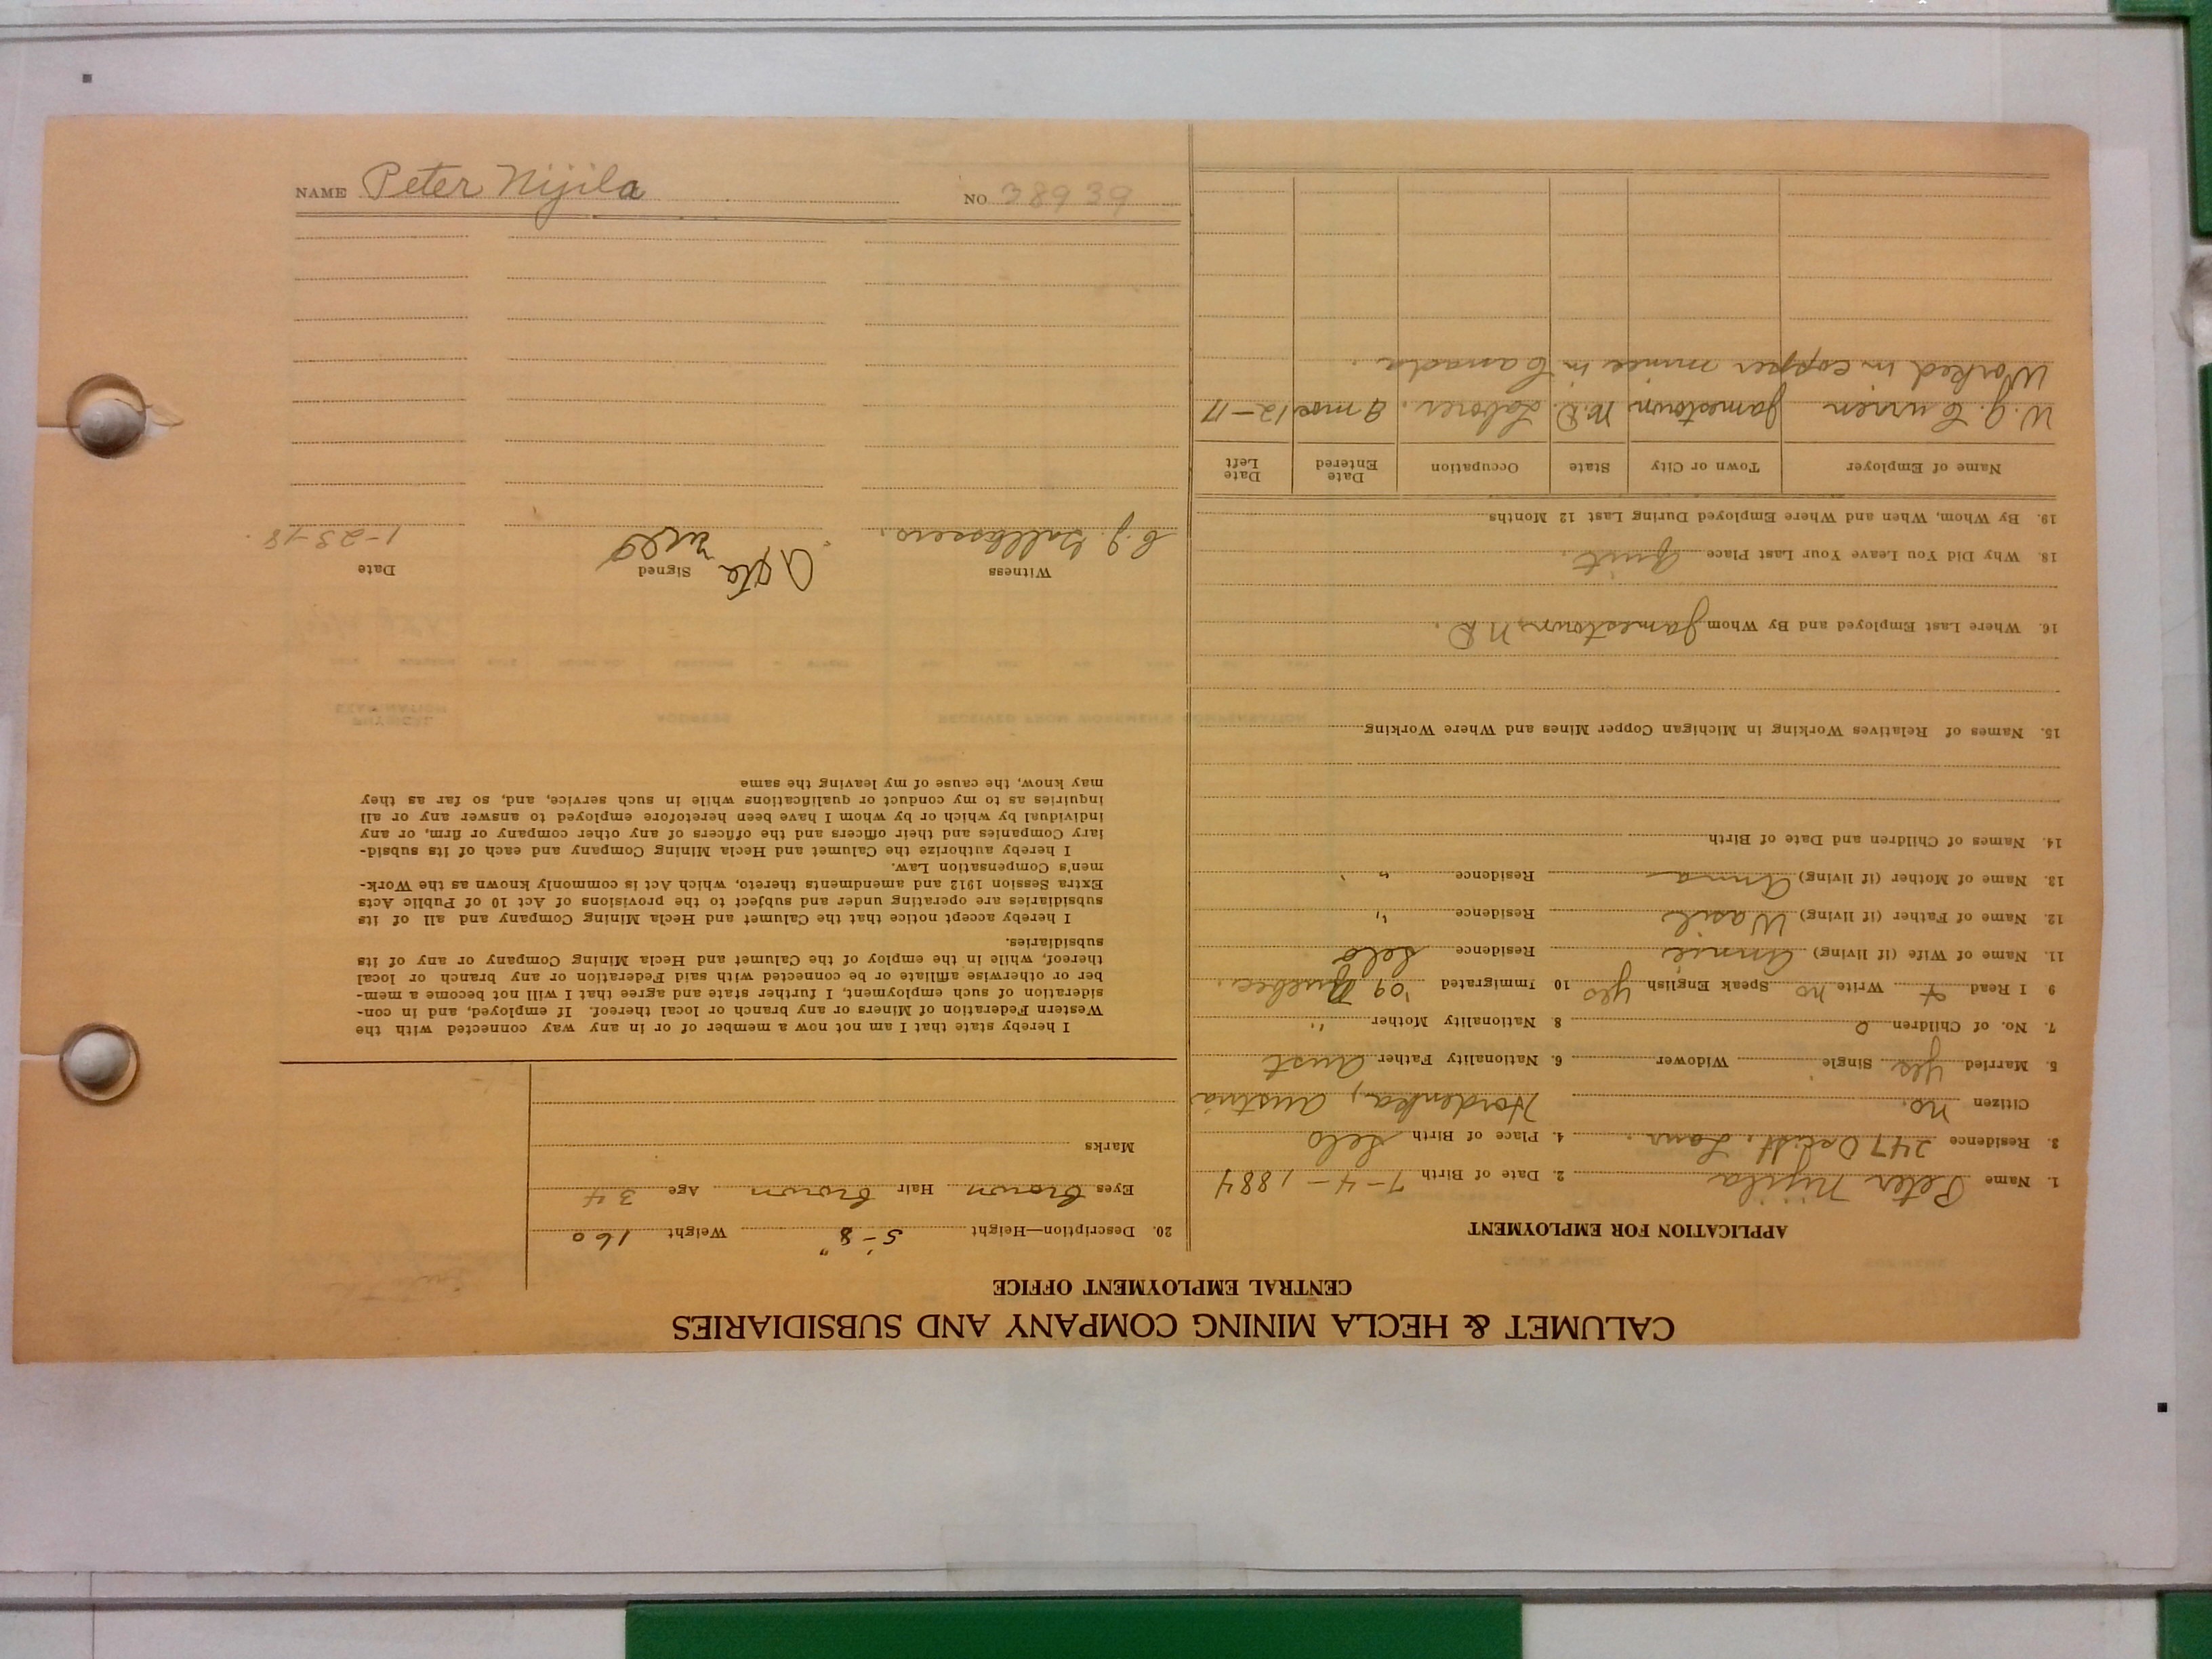 CALUMET & HECLA MINING COMPANY AND SUBSIDIARIES
CENTRAL EMPLOYMENT OFFICE
APPLICATION FOR EMPLOYMENT
1. Name Peter Nijila 2. Date of Birth 7-4-1884
3. Residence 247 St. Laur. 4. Place of Birth Selo
Citizen no. Hordenka, Austria
5. Married yes Single Widower 6. Nationality Father Aust
7. No. of Children 0 8. Nationality Mother "
9 I Read + Write no Speak English yes 10 Immigrated '09 Quebec.
11. Name of Wife (if living) Annie Residence Selo
12. Name of Father (if living) Wasil Residence "
13. Name of Mother (if living) Anna Residence "
14. Names of Children and Date of Birth
15. Names of Relatives Working in Michigan Copper Mines and Where Working
16. Where Last Employed and By Whom Jamestown, N.D.
18. Why Did You Leave Your Last Place Quit.
19. By Whom, When and Where Employed During Last 12 Months
Name of Employer Town or City State Occupation Date Entered Date Left
W. J. Curren Jamestown N.D. Laborer. 9 mos 12-17
Worked in copper mines in Canada.
20. Description—Height 5'-8" Weight 160
Eyes Brown Hair Brown Age 34
Marks
I hereby state that I am not now a member of or in any way connected with the
Western Federation of Miners or any branch or local thereof. If employed, and in con-
sideration of such employment, I further state and agree that I will not become a mem-
ber or otherwise affiliate or be connected with said Federation or any branch or local
thereof, while in the employ of the Calumet and Hecla Mining Company or any of its
subsidiaries.
I hereby accept notice that the Calumet and Hecla Mining Company and all of its
subsidiaries are operating under and subject to the provisions of Act 10 of Public Acts
Extra Session 1912 and amendments thereto, which Act is commonly known as the Work-
men's Compensation Law.
I hereby authorize the Calumet and Hecla Mining Company and each of its subsid-
iary Companies and their officers and the officers of any other company or firm, or any
individual by which or by whom I have been heretofore employed to answer any or all
inquiries as to my conduct or qualifications while in such service, and, so far as they
may know, the cause of my leaving the same
Witness Signed Date
C. J. 1-23-18.
NAME Peter Nijila NO 38939